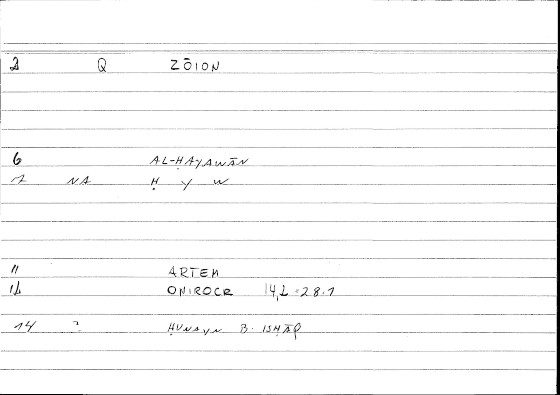 2 Q ZŌION
6 AL-ḤAYAWĀN
7 NA Ḥ Y W
11 ARTEM
12 ONIROCR 14,2 = 28.7
14 ? ḤUNAYN B. ISḤĀQ